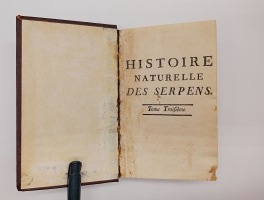 HISTOIRE
NATURELLE
DES SERPENS.
Tome Troisième.